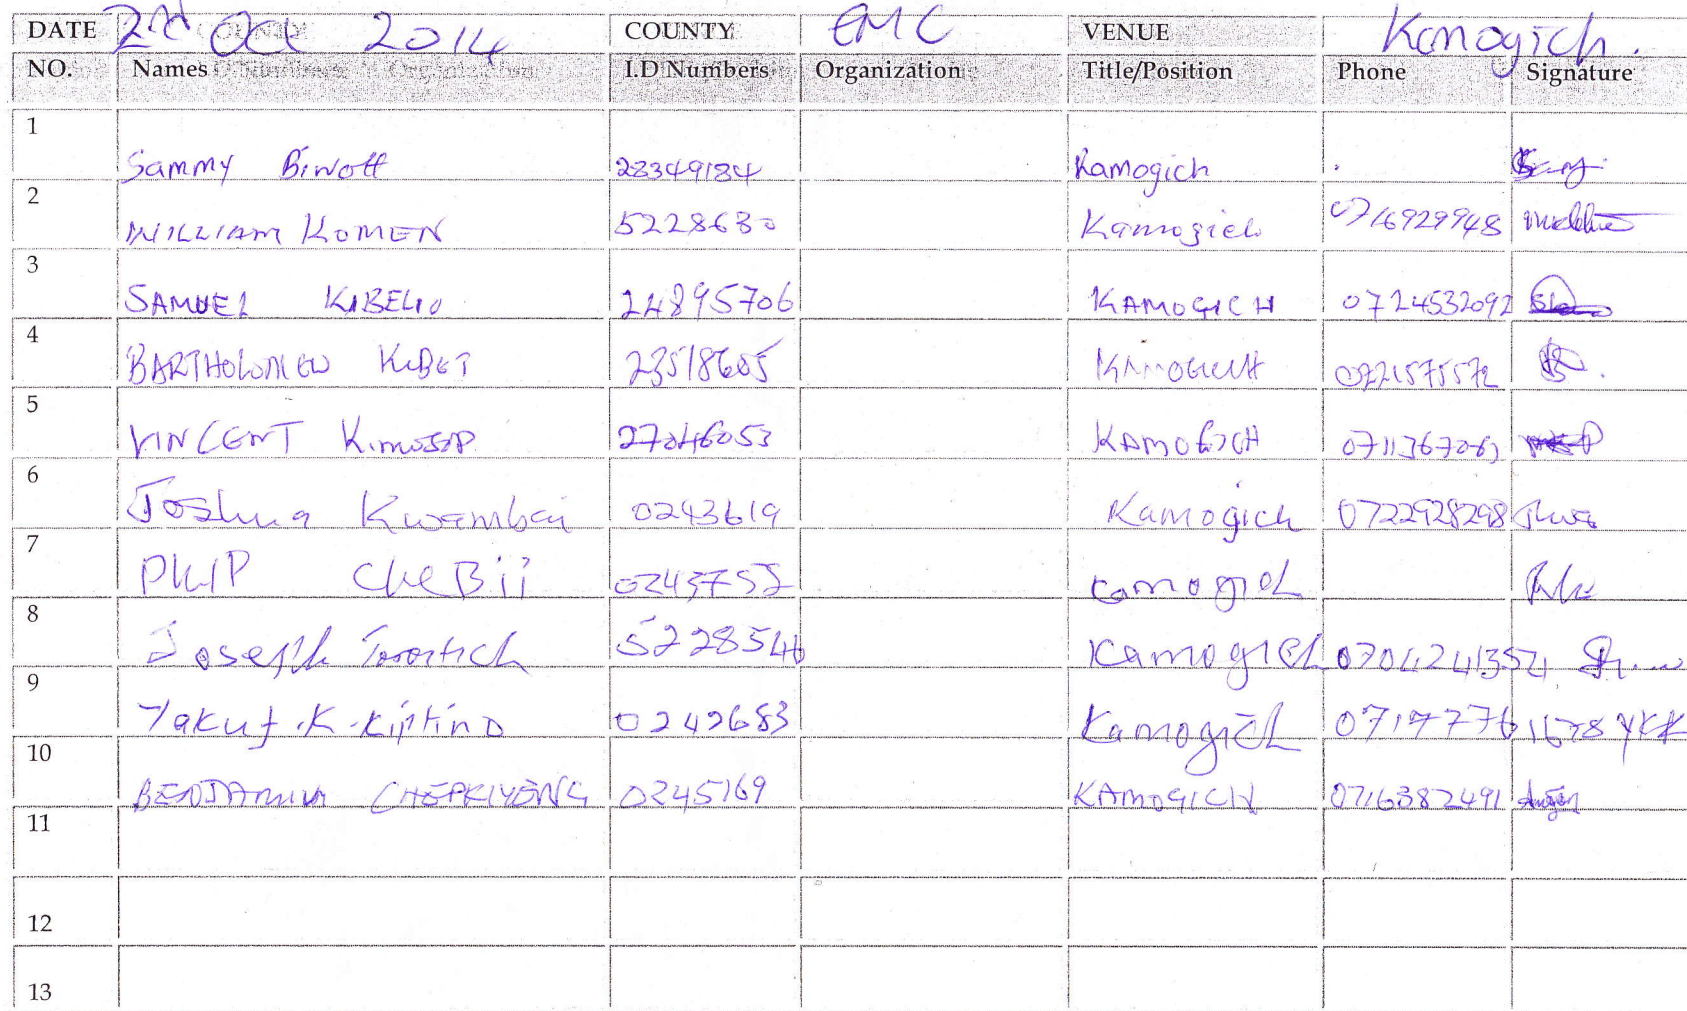 DATE 2nd Oct 2014 COUNTY EMC VENUE Kamogich.
NO. Names I.D Numbers Organization Title/Position Phone Signature
1 Sammy Biwott 28349184 Kamogich
2 WILLIAM KOMEN 5228630 Kamogich 0716929948
3 SAMUEL KIBELIO 24895706 KAMOGICH 0724532092
4 BARTHOLOMEW KIBET 23518605 KAMOGICH 0721575572
5 VINCENT Kimosop 27046053 KAMOGICH
6 Joshua Kwambai 0243619 Kamogich 0722928298
7 PKIP CheBii Kamogich
8 Joseph Torortich 5228546 Kamogich 0704241354
9 Yakuf .K. Kiptino 0242683 Kamogich 07177761678 YKK
10 BENJAMIN CHEPKIYENG 0245169 KAMOGICH 0716382491
11
12
13